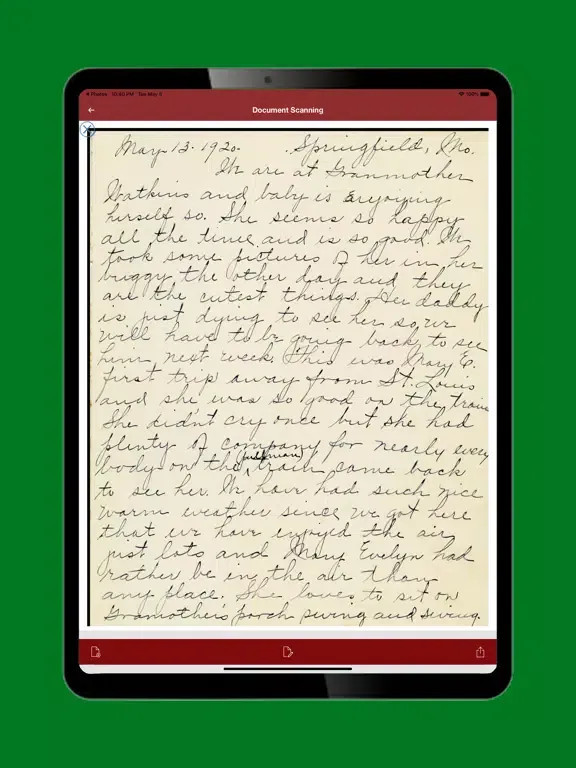 Photos 10:40 PM Tue May 5
100%
Document Scanning
May 13. 1920. Springfield, Mo.
We are at Granmother
Watkins and baby is enjoying
herself so. She seems so happy
all the time and is so good. We
took some pictures of her in her
buggy the other day and they
are the cutest things. Her daddy
is just dying to see her so, we
will have to be going back to see
him next week. This was Mary E.
first trip away from St. Louis
and she was so good on the train
She didn't cry once but she had
plenty of company for nearly every
body on the train came back
to see her. We have had such nice
warm weather since we got here
that we have enjoyed the air
just lots and Mary Evelyn had
rather be in the air than
any place. She loves to sit on
Gramother's porch swing and swing.